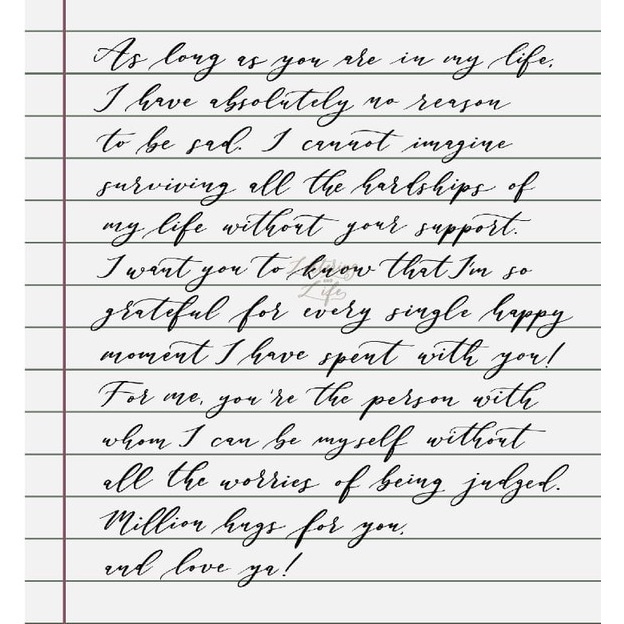 As long as you are in my life,
I have absolutely no reason
to be sad. I cannot imagine
surviving all the hardships of
my life without your support.
I want you to know that I'm so
grateful for every single happy
moment I have spent with you!
For me, you're the person with
whom I can be myself without
all the worries of being judged.
Million hugs for you,
and love ya!